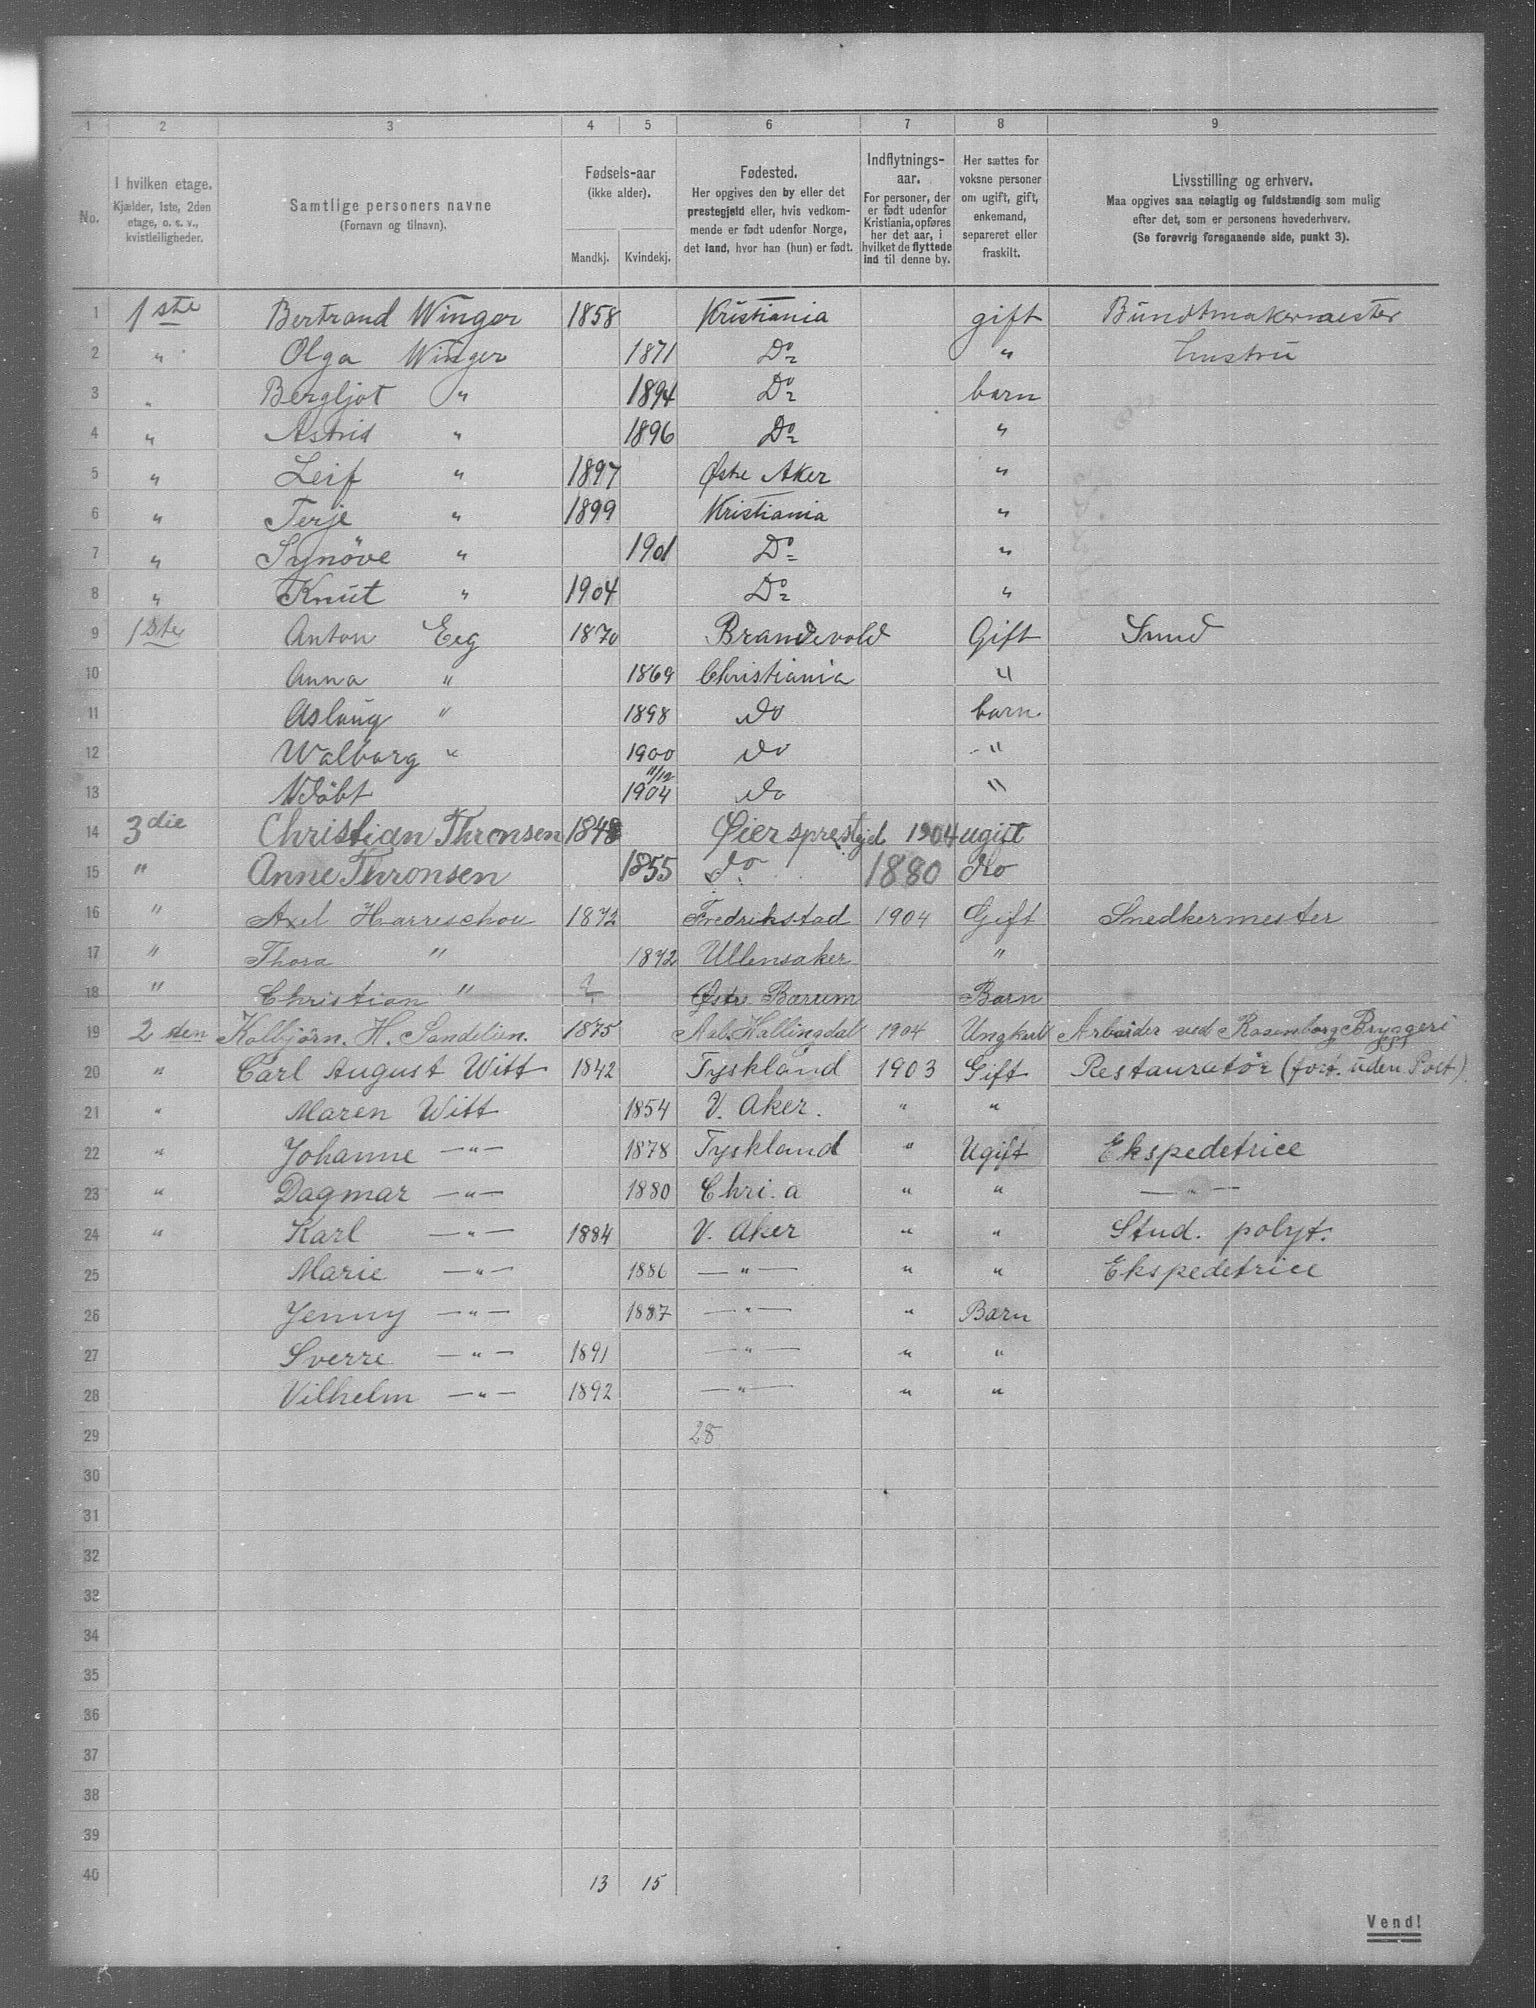 1 2 3 4 5 6 7 8 9
No.
I hvilken etage.
Kjælder, 1ste, 2den
etage, o. s. v.,
kvistleiligheder.
Samtlige personers navne
(Fornavn og tilnavn).
Fødsels-aar
(ikke alder).
Mandkj. Kvindekj.
Fødested.
Her opgives den by eller det
prestegjeld eller, hvis vedkom-
mende er født udenfor Norge,
det land, hvor han (hun) er født.
Indflytnings-
aar.
For personer, der
er født udenfor
Kristiania, opføres
her det aar, i
hvilket de flyttede
ind til denne by.
Her sættes for
voksne personer
om ugift, gift,
enkemand,
separeret eller
fraskilt.
Livsstilling og erhverv.
Maa opgives saa nøiagtig og fuldstændig som mulig
efter det, som er personens hovederhverv.
(Se forøvrig foregaaende side, punkt 3).
1 1ste Bertrand Winger 1858 Kristiania gift Bundtmakermester
2 " Olga Winger 1871 Do " hustru
3 " Bergljot " 1894 Do barn
4 " Astrid " 1896 Do "
5 " Leif " 1897 Østre Aker "
6 " Terje " 1899 Kristiania "
7 " Synøve " 1901 Do "
8 " Knut " 1904 Do "
9 1ste Anton Eeg 1870 Brandevold Gift Smed
10 Anna " 1869 Christiania "
11 Aslaug " 1898 do barn
12 Walborg " 1900 do "
13 Udøbt 11/12 1904 do "
14 3die Christian Thronsen 1848 Øiersprestejel 1904 ugift
15 " Anne Thronsen 1855 do 1880 do
16 " Axel Harreschou 1872 Fredrikstad 1904 Gift Snedkermester
17 " Thora " 1872 Ullensaker "
18 " Christian " ? Østre Bærum Barn
19 2den Kolbjørn. H. Sandelien. 1875 Aal. Hallingdal 1904 Ungkarl Arbeider ved Rosenborg Bryggeri
20 " Carl August Witt 1842 Tyskland 1903 Gift Restauratør (fort. uden Port)
21 " Maren Witt 1854 V. Aker. " "
22 " Johanne —"— 1878 Tyskland " Ugift Ekspedetrice
23 " Dagmar —"— 1880 Chri.a " " —"—
24 " Karl —"— 1884 V. Aker " " Stud. polyt.
25 Marie —"— 1886 —"— " " Ekspedetrice
26 Jenny —"— 1887 —"— " Barn
27 Sverre —"— 1891 —"— " "
28 Vilhelm —"— 1892 —"— " "
29 28
30
31
32
32
34
35
36
37
38
39
40 13 15
Vend!